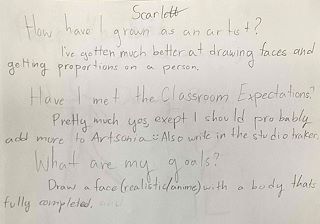 Scarlett
How have I grown as an artist?
I've gotten much better at drawing faces and
getting proportions on a person.
Have I met the Classroom Expectations?
Pretty much yes, exept I should probably
add more to Artsonia :: Also write in the studio traker.
What are my goals?
Draw a face (realistic/anime) with a body thats
fully completed.